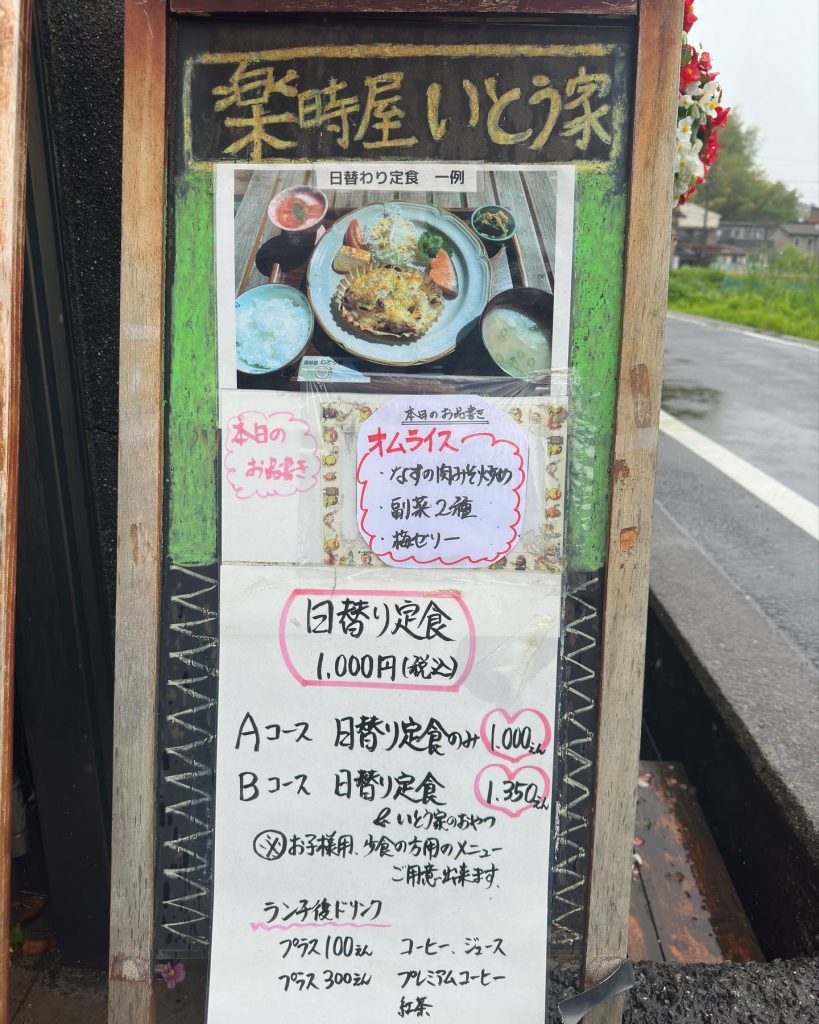 楽時屋 いとう家
日替わり定食 一例
本日の
お品書き
本日のお品書き
オムライス
・なすの肉みそ炒め
・副菜2種
・梅ゼリー
日替り定食
1.000円(税込)
Aコース 日替り定食のみ 1.000えん
Bコース 日替り定食 1.350えん
& いとう家のおやつ
※お子様用、少食の方用のメニュー
ご用意出来ます。
ランチ後ドリンク
プラス100えん コーヒー、ジュース
プラス300えん プレミアムコーヒー
紅茶